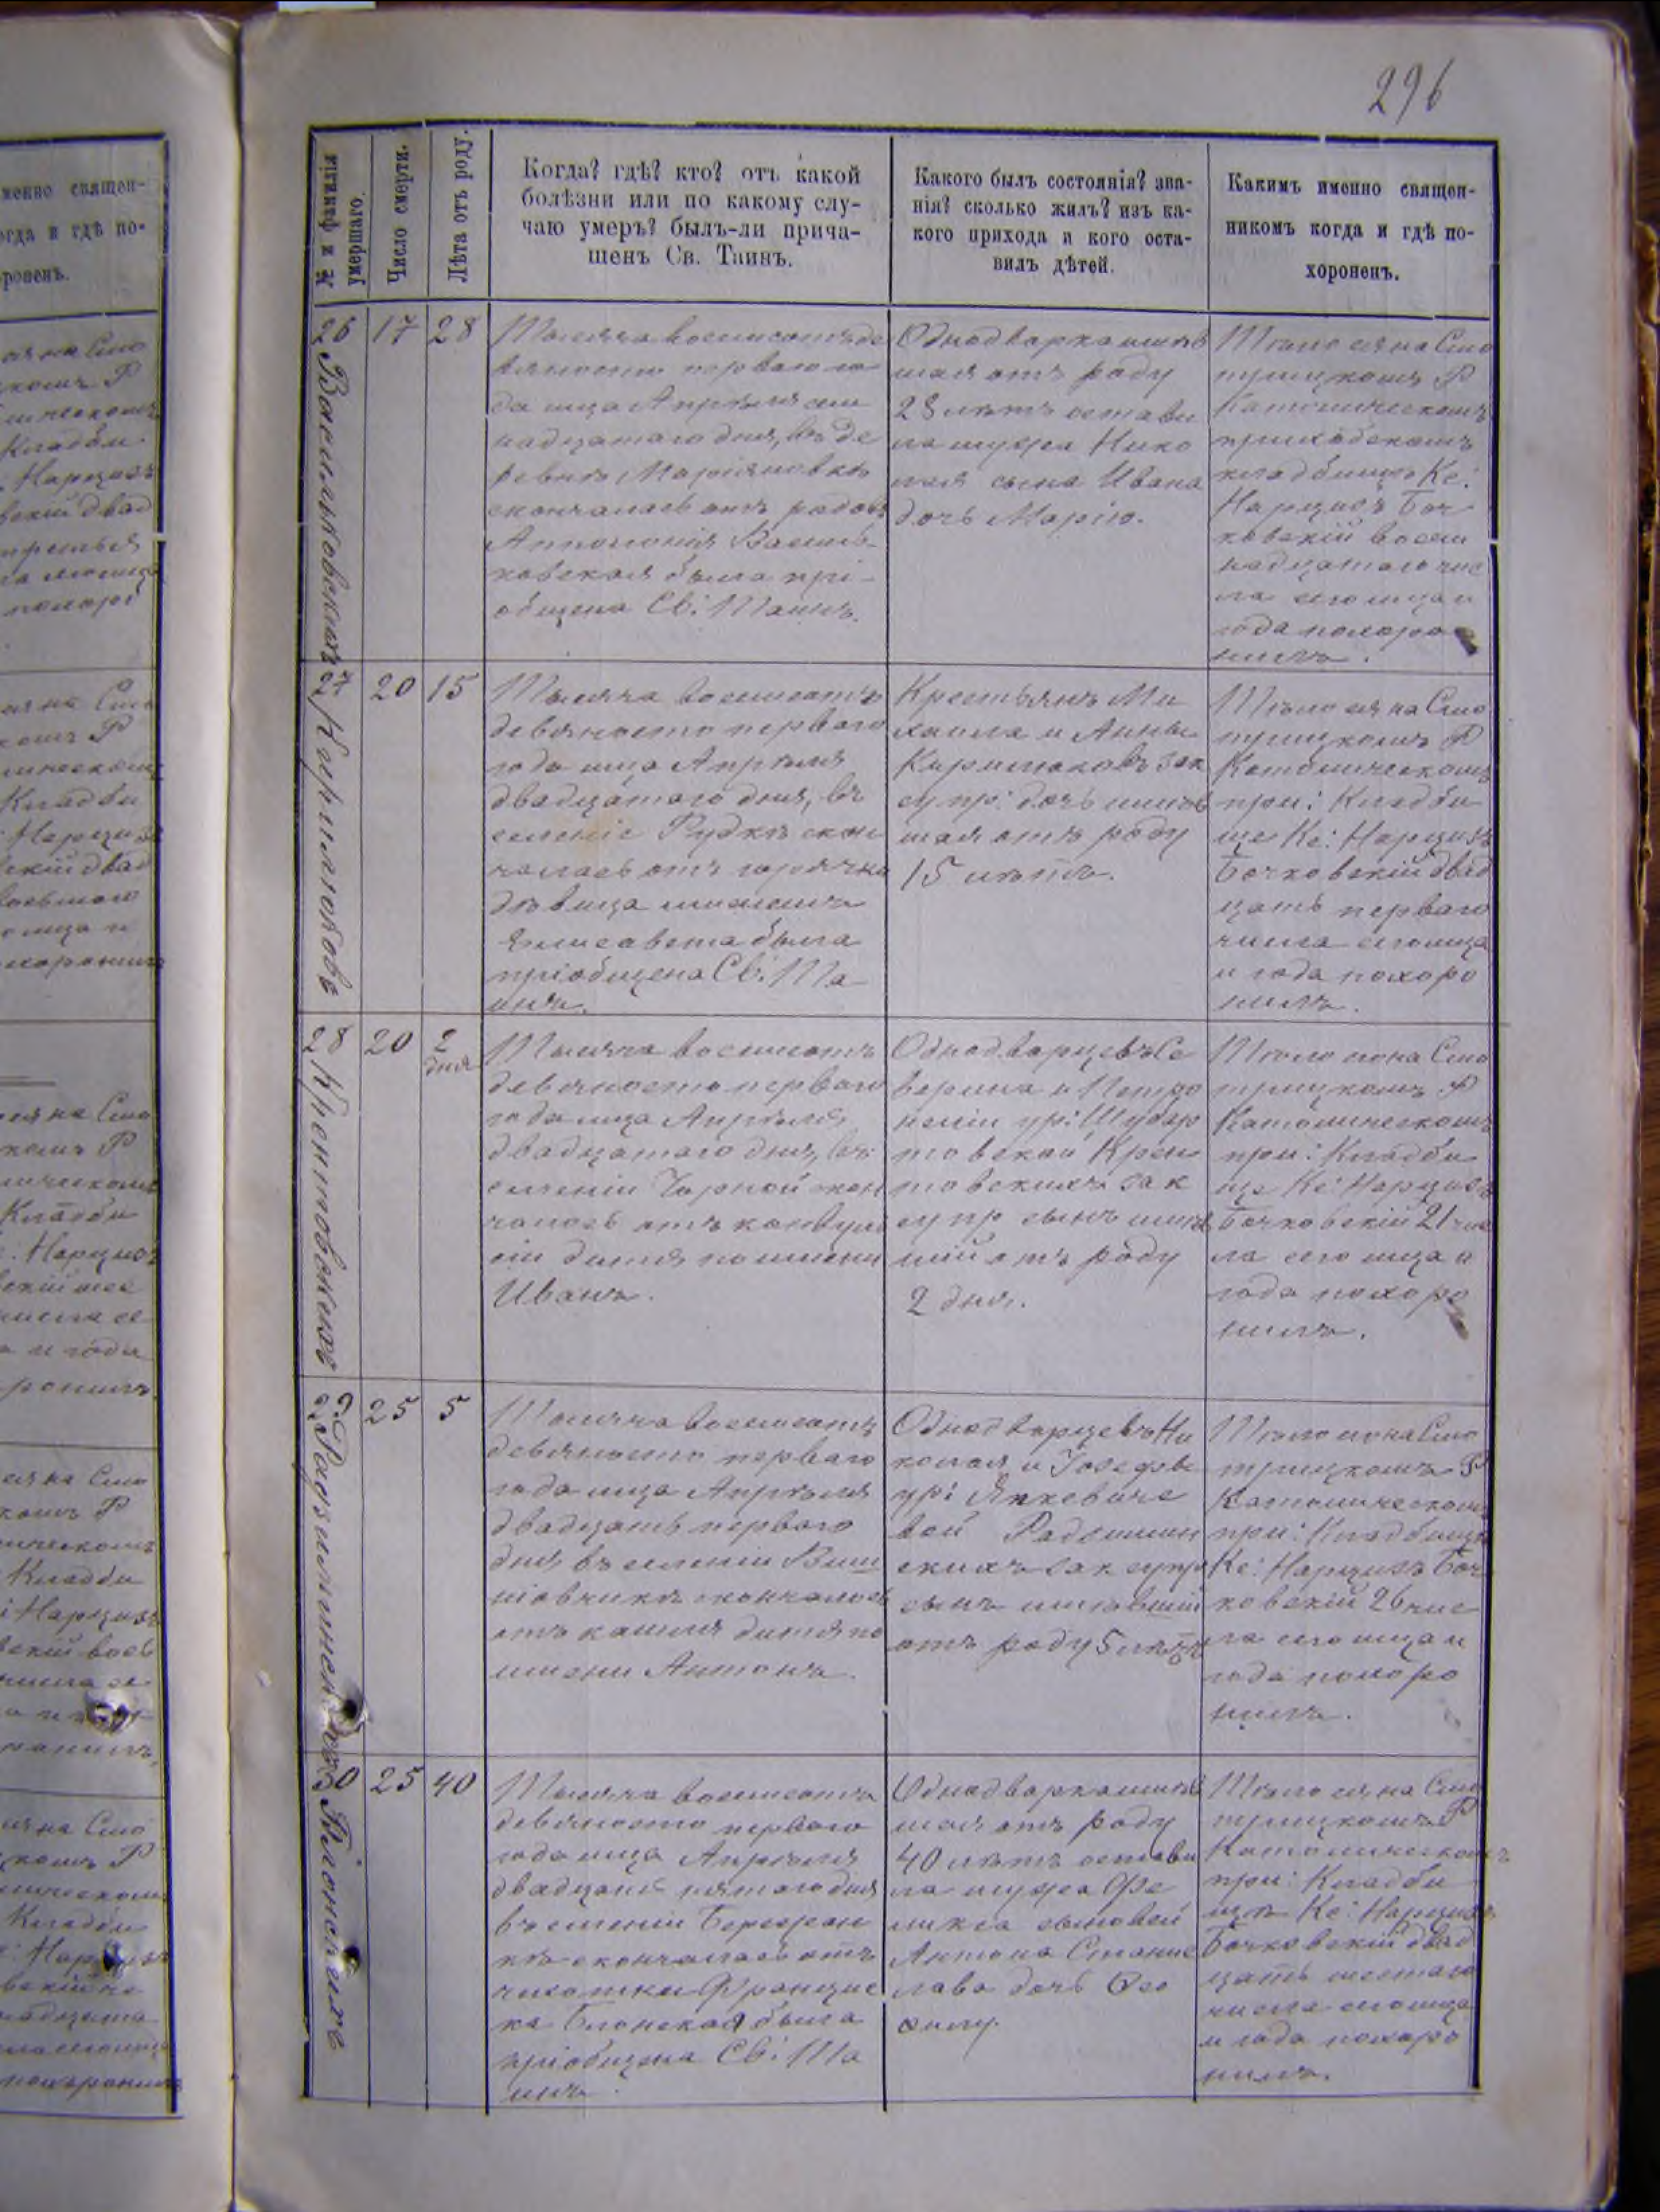 296
№ и фамилія
умершаго.
Число смерти.
Лѣта отъ роду.
Когда? гдѣ? кто? отъ какой
болѣзни или по какому слу-
чаю умеръ? былъ-ли прича-
шенъ Св. Таинъ.
Какого былъ состоянія? зва-
нія? сколько жилъ? изъ ка-
кого прихода и кого оста-
вилъ дѣтей.
Какимъ именно священ-
никомъ когда и гдѣ по-
хороненъ.
26 Васильковскихъ
17
28
Тысяча восемсотъ де
вяносто перваго го
да мца Апрѣля сем
надцатаго дня, въ де
ревнѣ Маріяновкѣ
скончалась отъ родовъ
Апполонія Василь-
ковская была прі-
общена Св: Таинъ.
Однодворка имѣв
шая отъ роду
28 лѣтъ остави
ла мужа Нико
лая сына Ивана
дочь Марію.
Тѣло ея на Смо
трицкомъ Р
Католическомъ
приходскомъ
кладбищѣ Кс:
Нарцизъ Боч
ковскій восем
надцатаго чис
ла сего мца и
года похоро
нилъ.
27 Кирилюковъ
20
15
Тысяча восемсотъ
девяносто перваго
года мца Апрѣля
двадцатаго дня, въ
селеніе Рудкѣ скон
чалась отъ горячки
дѣвица именемъ
Елисавета была
пріобщена Св: Та
инъ.
Крестьянъ Ми
хаила и Анны
Кирилюковъ зак
супр: дочь имѣв
шая отъ роду
15 лѣтъ.
Тѣло ея на Смо
трицкомъ Р
Католическомъ
при: Кладби
ще Кс: Нарцизъ
Бочковскій двад
цать перваго
числа сего мца
и года похоро
нилъ.
28 Крентовскихъ
20
2
дня
Тысяча восемсотъ
девяносто перваго
года мца Апрѣля
двадцатаго дня, въ
селеніи Чорной скон
чалось отъ конвуль
сіи дитя по имени
Иванъ.
Однодворцевъ Се
верина и Петро
неліи ур: Шубар
товской Крен
товскихъ зак
супр сынъ имѣв
шій отъ роду
2 дня.
Тѣло его на Смо
трицкомъ Р
Католическомъ
при: Кладби
ще Кс: Нарцизъ
Бочковскій 21 чис
ла сего мца и
года похоро
нилъ.
29
25
5
Тысяча восемсотъ
девяносто перваго
года мца Апрѣля
двадцать перваго
дня, въ селеніи Виш
ніовчикѣ скончалось
отъ кашля дитя по
имени Антонъ.
Однодворцевъ Ни
колая и Іозефы
ур: Янкевиче
вой Радзимин
скихъ зак супр
сынъ имѣвшій
отъ роду 5 лѣтъ
Тѣло его на Смо
трицкомъ Р
Католическомъ
при: Кладбищѣ
Кс: Нарцизъ Боч
ковскій 26 чис
ла сего мца и
года похоро
нилъ.
30 Блонскихъ
25
40
Тысяча восемсотъ
девяносто перваго
года мца Апрѣля
двадцать пятаго дня
въ селеніи Бережан
кѣ скончалась отъ
чихотки Францис
ка Блонская была
пріобщена Св: Та
инъ.
Однодворка имѣв
шая отъ роду
40 лѣтъ остави
ла мужа Фе
ликса сыновей
Антона Станис
лава дочь Фео
филу.
Тѣло ея на Смо
трицкомъ Р
Католическомъ
при: Кладби
щѣ Кс: Нарцизъ
Бочковскій двад
цать шестаго
числа сего мца
и года похоро
нилъ.